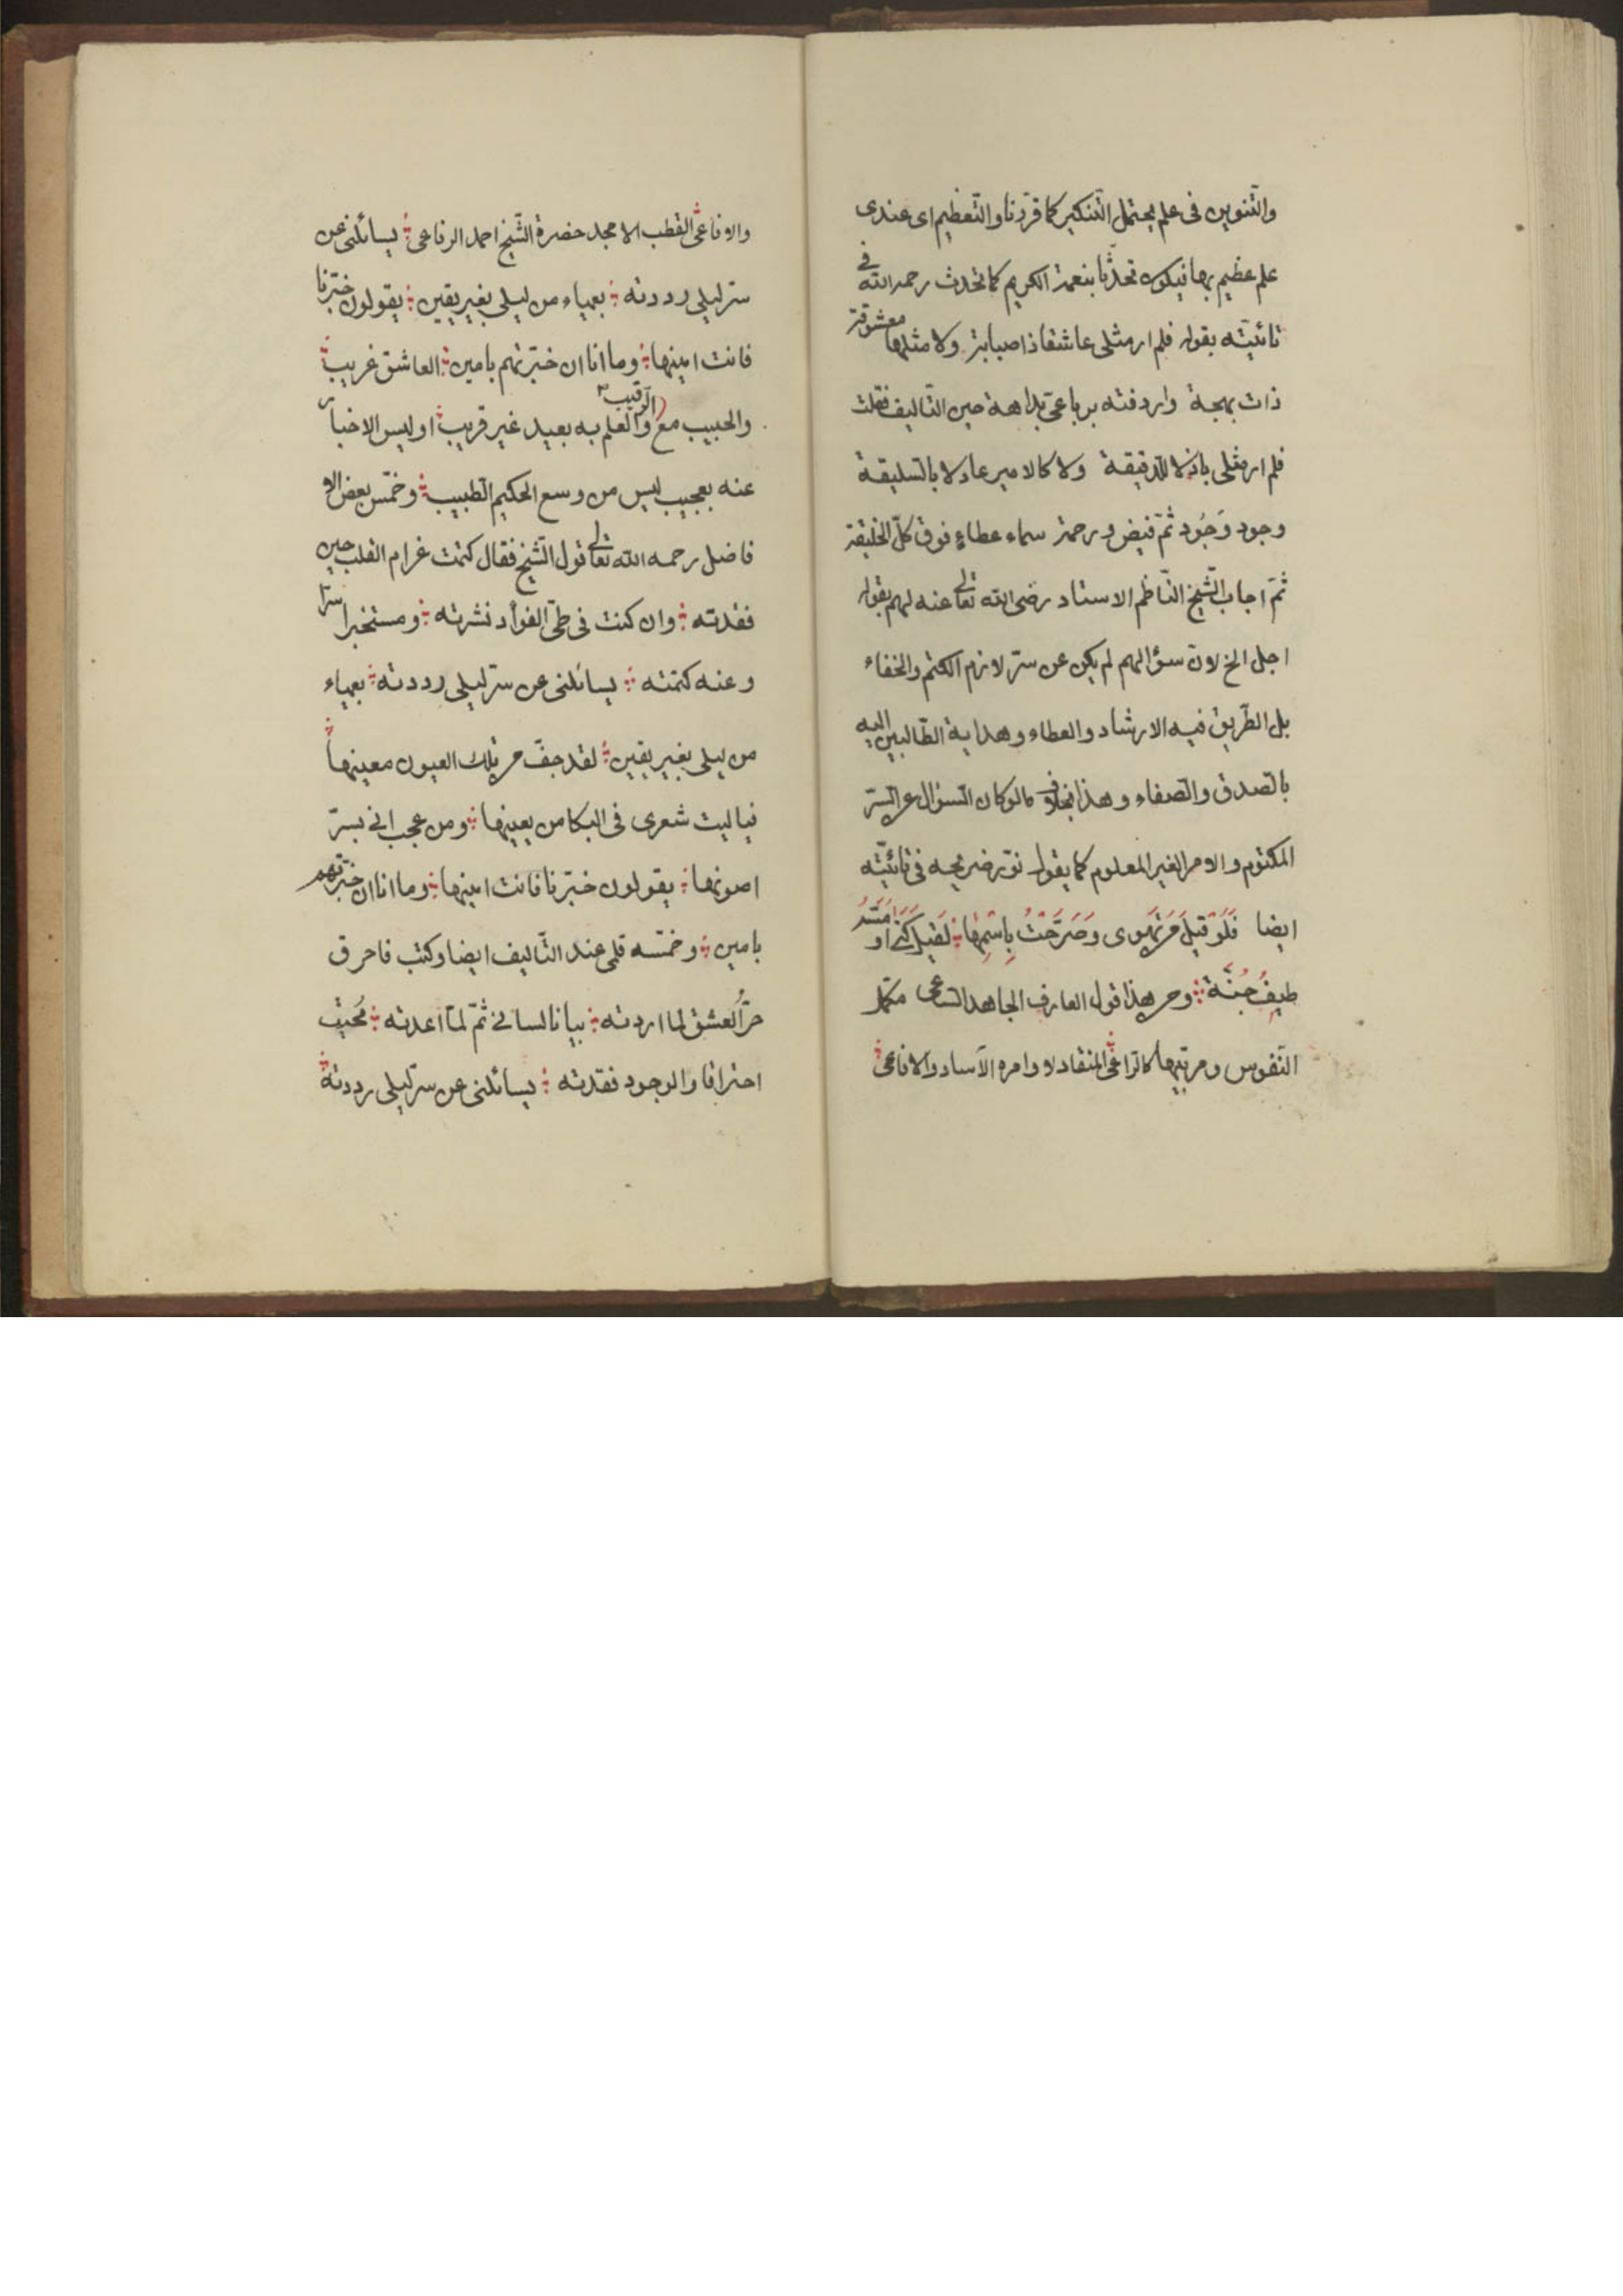 والتّنوين فى علم يحتمل التّنكير كما قرّرنا والتّعظيم اى عندى
علم عظيم بها فيكون تحدّثا بنعمة الكريم كما تحدث رحمه الله فى
تائيّته بقوله فلم ار مثلى عاشقا ذا صبابة ولا مثلها معشوقة
ذات بهجة واردفته برباعىّ بداهة حين التّاليف فقلت
فلم ار مثلى باذلا للدقيقة ولا كالامير عادلا بالسّليقة
وجود وَجُود ثمّ فيض ورحمة سماء عطاءٍ فوق كلّ الخليقة
ثمّ اجاب الشّيخ النّاظم الاستاد رضى الله تعالى عنه لهم بقوله
اجل الخ لان سؤالهم لم يكن عن سرّ لازم الكتم والخفاء
بل الطّريق فيه الارشاد والعطاء وهداية الطّالبين اليه
بالصّدق والصّفاء وهذا بخلاف مالو كان السّؤال عن السّرّ
المكتوم والامر الغير المعلوم كما يقول نوّر ضريحه فى تائيّته
ايضا فَلَوْ قيلَ مَن تهوى وَصَرَّحْتُ بِاسْمِها لَقيلَ كَنى او مَسَّهُ
طيفُ جِنَّة ومن هذا قول العارف الجاهد السّاعى مكمّل
النّفوس ومربّيها كالرّاعىّ المنقاد لاوامره الآساد والافاعىّ
والافاعىّ القطب الامجد حضرة الشّيخ احمد الرفاعى يسائلنى عن
سرّ ليلى رددته بعمياء من ليلى بغير يقين يقولون خبّرنا
فانت امينها وما انا ان خبّرتهم بامين العاشق غريب
والحبيب مع الرّقيب والعلم به بعيد غير قريب اوليس الاخبار
عنه بعجيب ليس من وسع الحكيم الطّبيب وخمّس بعض الا
فاضل رحمه الله تعالى قول الشّيخ فقال كتمت غرام القلب حين
فقدته وان كنت فى طىّ الفؤاد نشرته ومستخبرا سرّا
وعنه كتمته يسائلنى عن سرّ ليلى رددته بعمياء
من ليلى بغير يقين لقد جفّ من تلك العيون معينها
فياليت شعرى فى البكا من يعينها ومن عجب انى بسرّ
اصونها يقولون خبّرنا فانت امينها وما انا ان خبّرتهم
بامين وخمّسه قلمى عند التّاليف ايضا وكتب فاحرق
حرّ العشق لما اردته بيانا لسانى ثمّ لمّا اعدته مُحيق
احتراقا والوجود فقدته يسائلنى عن سرّ ليلى رددته